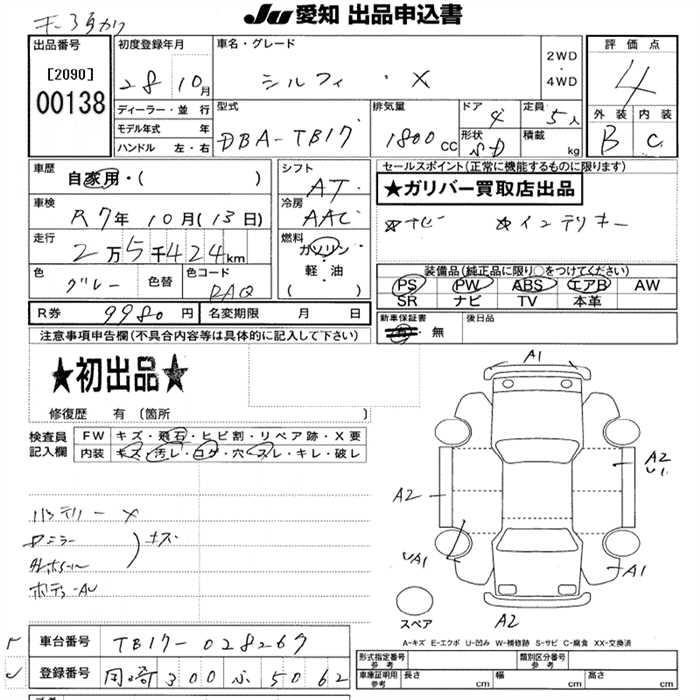 JU 愛知 出品申込書
出品番号
[2090]
00138
初度登録年月
28 10月
ディーラー・並 行
モデル年式 年
ハンドル 左・右
車名・グレード
シルフィ ・ X
2WD
・
4WD
型式
DBA-TB17
排気量
1800 CC
ドア
4
形状
SD
定員
5人
積載
kg
評価点
4
外装 内装
B C
車歴
自家用・( )
車検
R7年 10月(13日)
走行
2万5千424km
色
グレー
色替
色コード
RAQ
シフト
AT
冷房
AAC
燃料
ガソリン
軽・油
( )
セールスポイント(正常に機能するものに限ります)
★ガリバー買取店出品
☆ナビ ☆インテリキー
装備品(純正品に限り○をつけてください)
PS PW ABS エアB AW
SR ナビ TV 本革
R券 9980円
名変期限 月 日
新車保証書
有・無
後日品
注意事項申告欄(不具合内容等は具体的に記入して下さい)
★初出品★
修復歴 有〔箇所 〕
検査員
記入欄
FW キズ・飛石・ヒビ割・リペア跡・X要
内装 キズ・汚レ・コゲ・穴・スレ・キレ・破レ
バッテリー X
ドミラー
キズ
ボディーAU
A1
A2
A2
U1
UA1
A1
A2
スペア
A-キズ E-エクボ U-凹み W-補修跡 S-サビ C-腐食 XX-交換済
車台番号 TB17-028267
登録番号 岡崎 300 ふ 5062
形式指定番号
参考
類別区分番号
参考
車庫証明用
参考
長さ cm
幅 cm
高さ cm